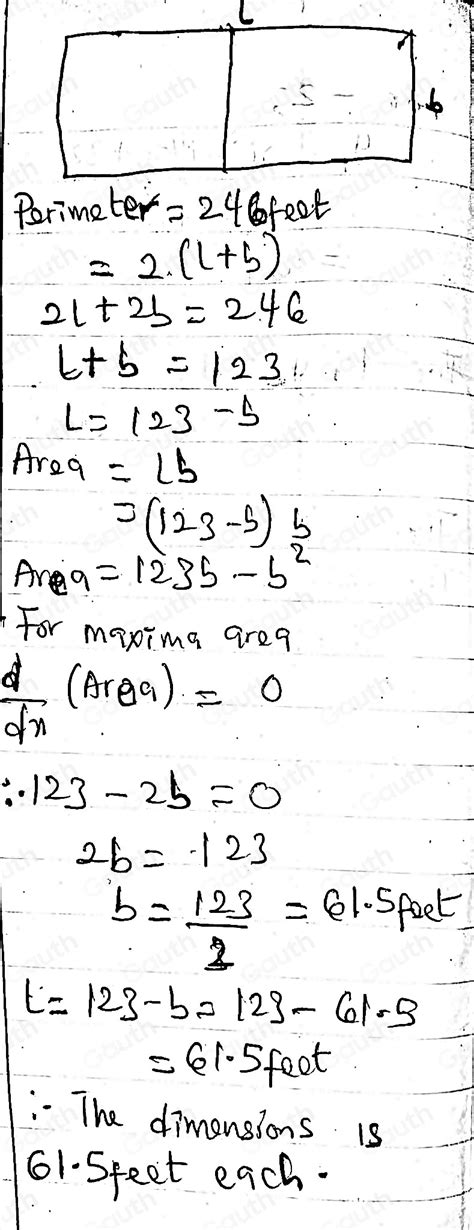 L
b
Perimeter = 246feet
= 2.(l+b)
2l+2b=246
l+b = 123
L= 123 -b
Area = lb
=(123-b) b
Area = 123b - b²
For maxima area
d/dn (Area) = 0
∴ 123 - 2b = 0
2b = 123
b = 123/2 = 61.5feet
L= 123-b = 123 - 61.5
= 61.5feet
∴ The dimensions is
61.5feet each.